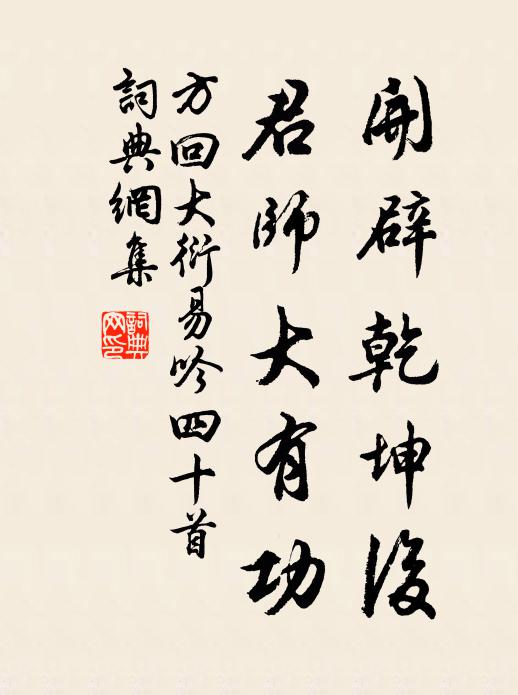 開辟乾坤後
君師大有功
方回大衍易吟四十首
詞典網集
詞典網印